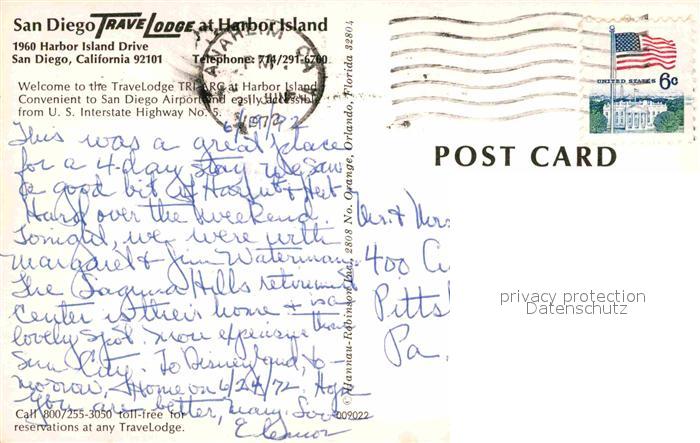 San Diego TRAVELODGE at Harbor Island
1960 Harbor Island Drive
San Diego, California 92101 Telephone: 714/291-6700
Welcome to the TraveLodge TRI-ARC at Harbor Island
Convenient to San Diego Airport and easily accessible
from U. S. Interstate Highway No. 5.
6/19/72
This was a great place
for a 4-day stay. We saw
a good bit of Harriet + Herb
Hard over the weekend.
Tonight, we were with
Margaret & Jim Waterman.
The Laguna Hills retirement
Center is their home & is a
lovely spot. More expensive than
Sun City. To Disneyland, to-
morrow. Home on 6/24/72. Hope
you are better, Mary. Love
Eleanor
Call 800/255-3050 toll-free for
reservations at any TraveLodge.
009022
© Hannau-Robinson Inc., 2808 No. Orange, Orlando, Florida 32804
ANAHEIM CA
JUN
1972
UNITED STATES 6c
POST CARD
Mr. & Mrs.
400
Pitts
Pa.
privacy protection
Datenschutz